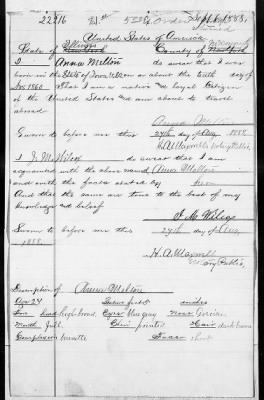 22216
Sept 6, 1888,
issued
United States of America
State of Illinois County of
I Anna Melton do swear that I was
born in the State of Iowa on or about the tenth day of
Nov 1860 that I am a native and loyal Citizen
of the United States and am about to travel
abroad
Anna Melton
Sworn to before me this 27th day of Aug 1888
H. A. Maxwell Notary Public,
I J. M. Wilcox do swear that I am
acquainted with the above named Anna Melton
and with the facts stated by her
And that the same are true to the best of my
knowledge and belief
J. M. Wilcox
Sworn to before me this 27th day of Aug,
1888.
H. A. Maxwell
Notary Public,
Description of Anna Melton
Age 24 five feet inches
high broad. Eyes blue gray Nose Grecian
Mouth full. Chin pointed Hair dark brown
Complexion brunette Face short